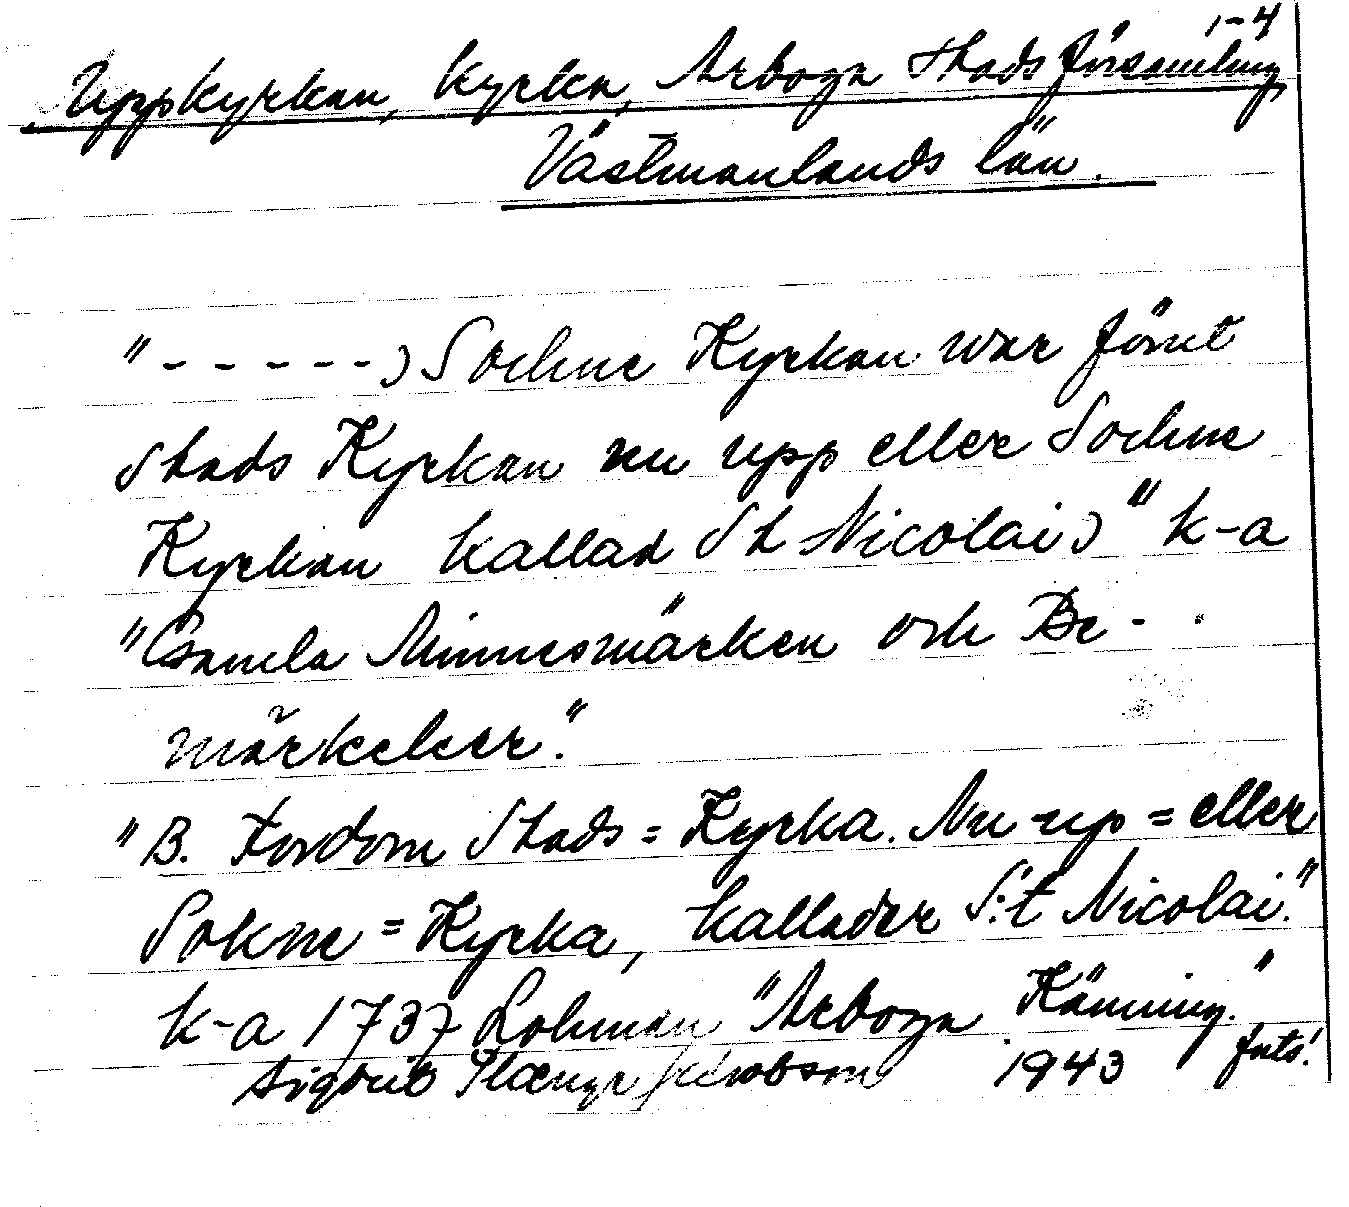 1-4
Uppkyrkan, kyrka, Arboga Stads församling,
Västmanlands län.
"-----) Sochne Kyrkan war först
Stads Kyrkan nu upp eller Sochne
Kyrkan kallad St Nicolai)" k-a
"Gamla Minnesmärken och Be-
märkelser."
"B. Fordom Stads=Kyrka. Nu up=eller
Sokne=Kyrka, kallader S:t Nicolai."
k-a 1737 Lohman "Arboga Känning."
Sigbrit Plænge Jacobson 1943 forts!